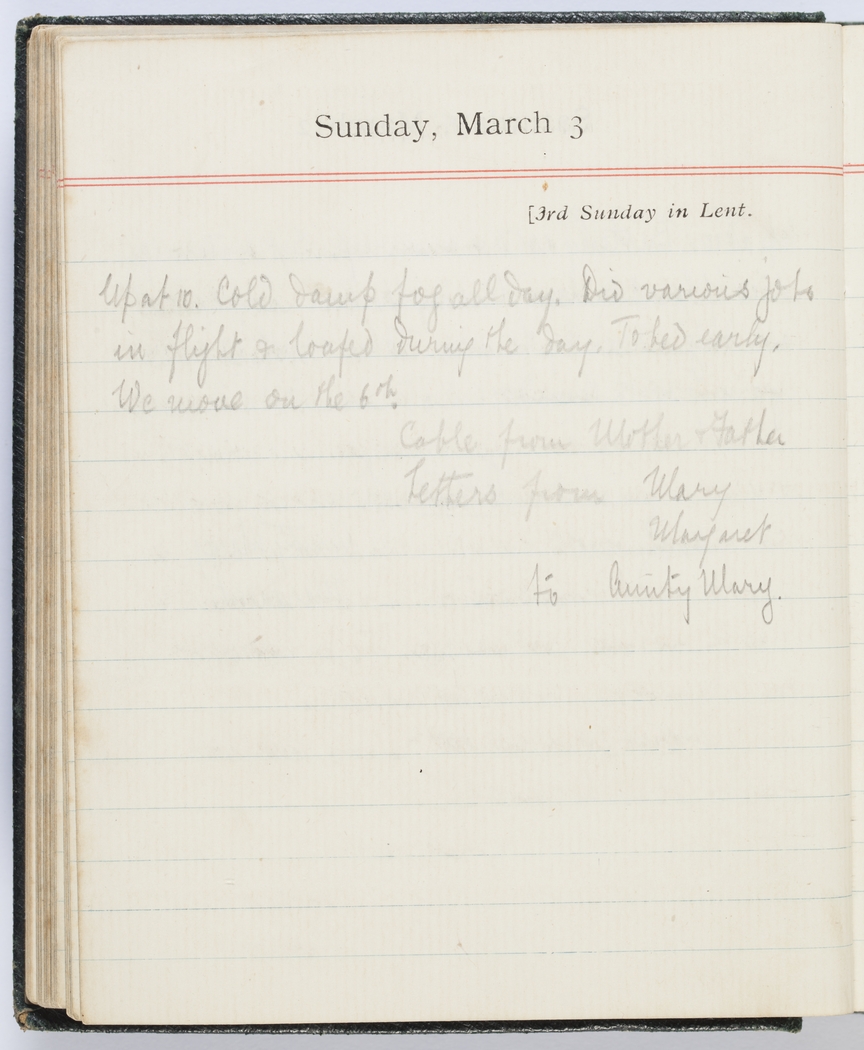 Sunday, March 3
[3rd Sunday in Lent.
Up at 10. Cold damp fog all day. Did various jobs
in flight & loafed during the day. To bed early.
We move on the 6th.
Cable from Mother & Father
Letters from Mary
Margaret
to Aunty Mary.